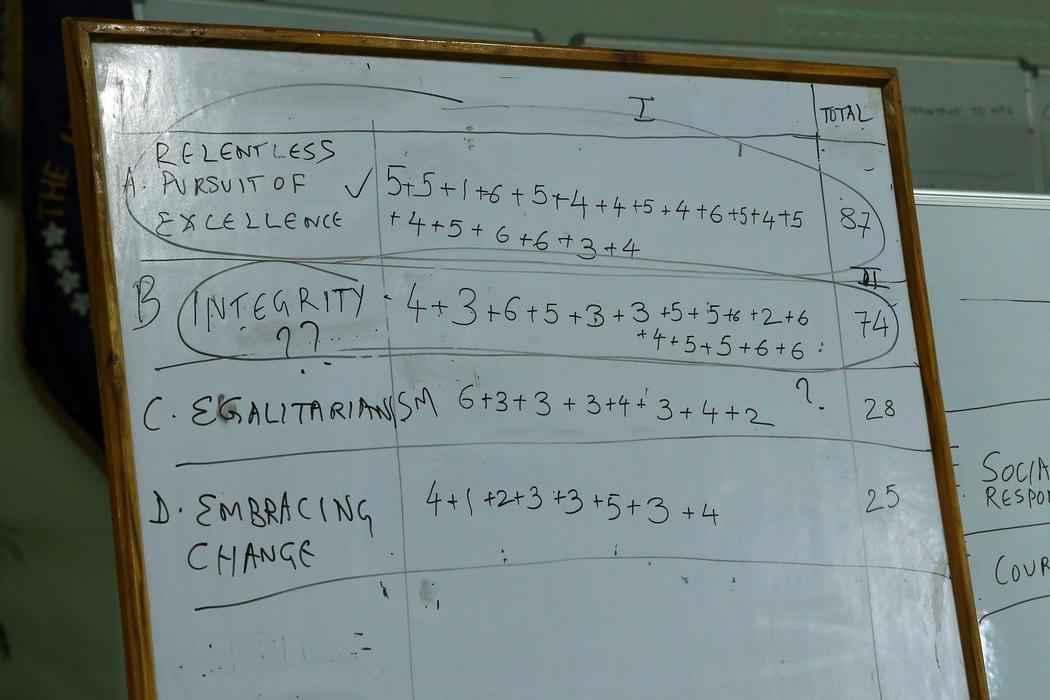 I TOTAL
RELENTLESS
A. PURSUIT OF ✓ 5+5+1+6+5+4+4+5+4+6+5+4+5 87
EXCELLENCE +4+5+6+6+3+4
II
B INTEGRITY - 4+3+6+5+3+3+5+5+6+2+6 74
?? +4+5+5+6+6
C. EGALITARIANISM 6+3+3+3+4+3+4+2 ?. 28
D. EMBRACING 4+1+2+3+3+5+3+4 25
CHANGE
SOCIA
RESPO
COUR
THE